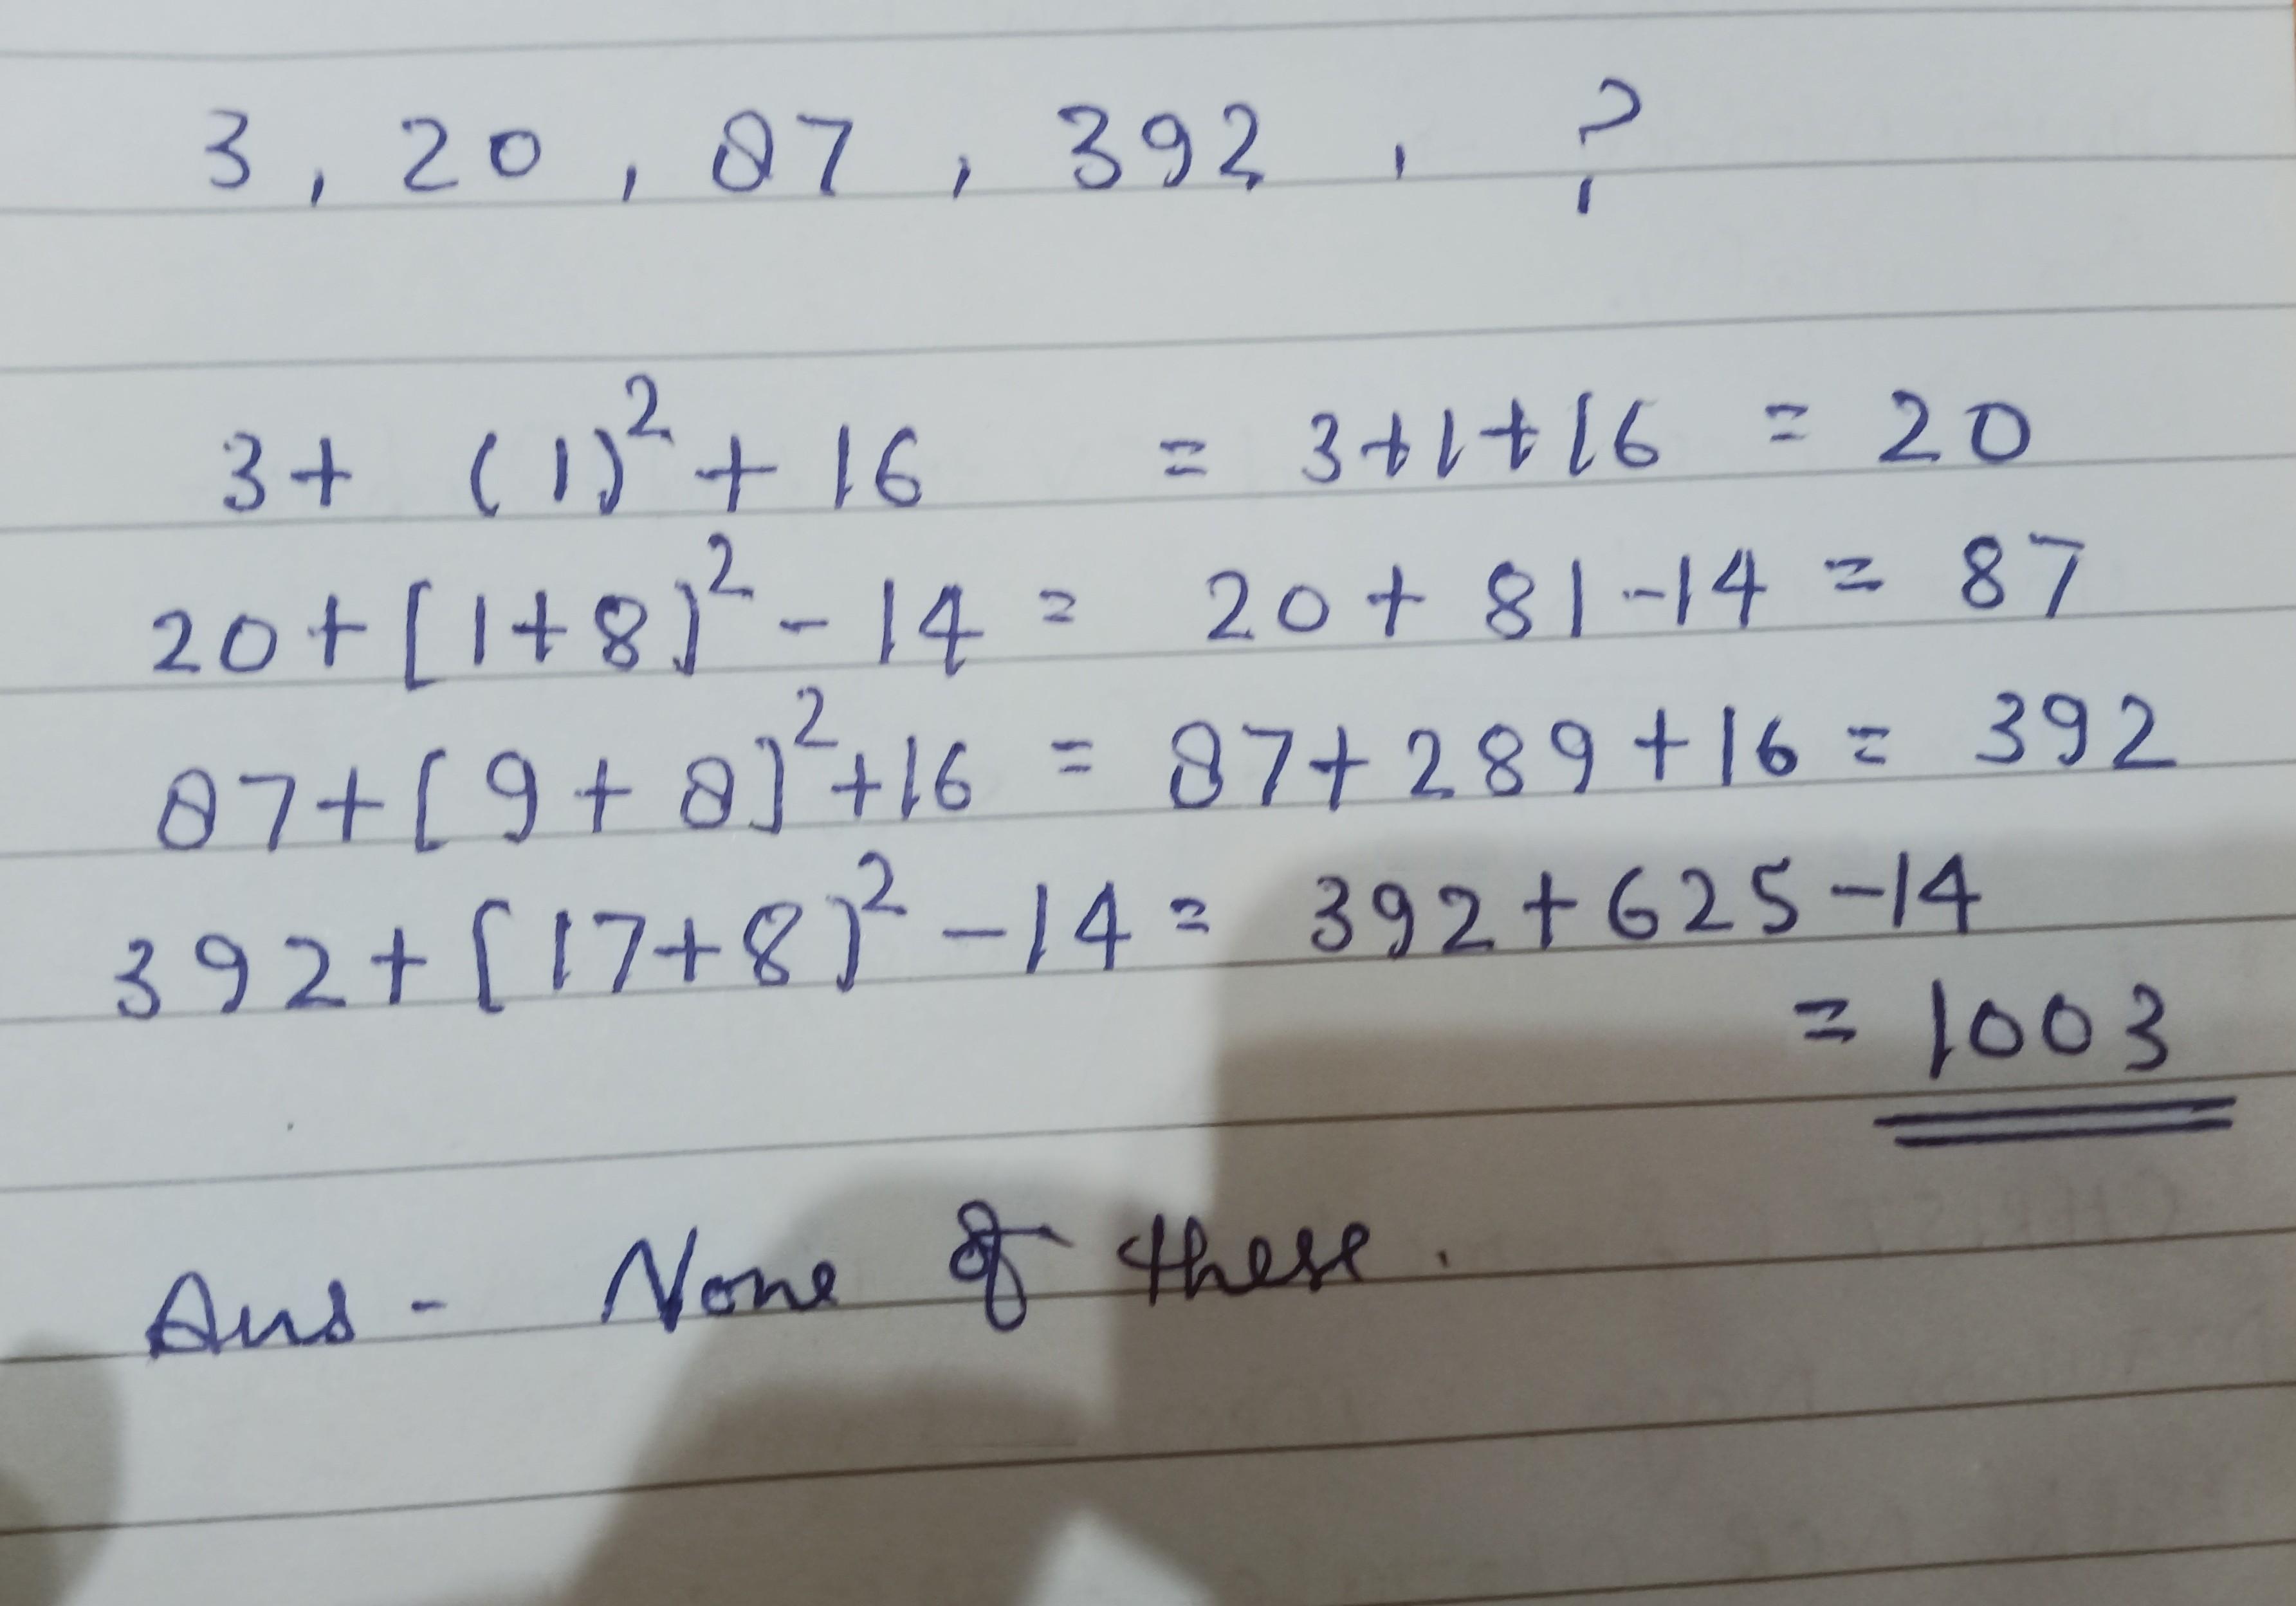 3, 20, 87, 392, ?
3+ (1)² + 16 = 3+1+16 = 20
20+[1+8]² - 14 = 20+ 81-14 = 87
87+[9+8]²+16 = 87+289+16 = 392
392+[17+8]² -14 = 392+625-14
= 1003
Ans - None of these.